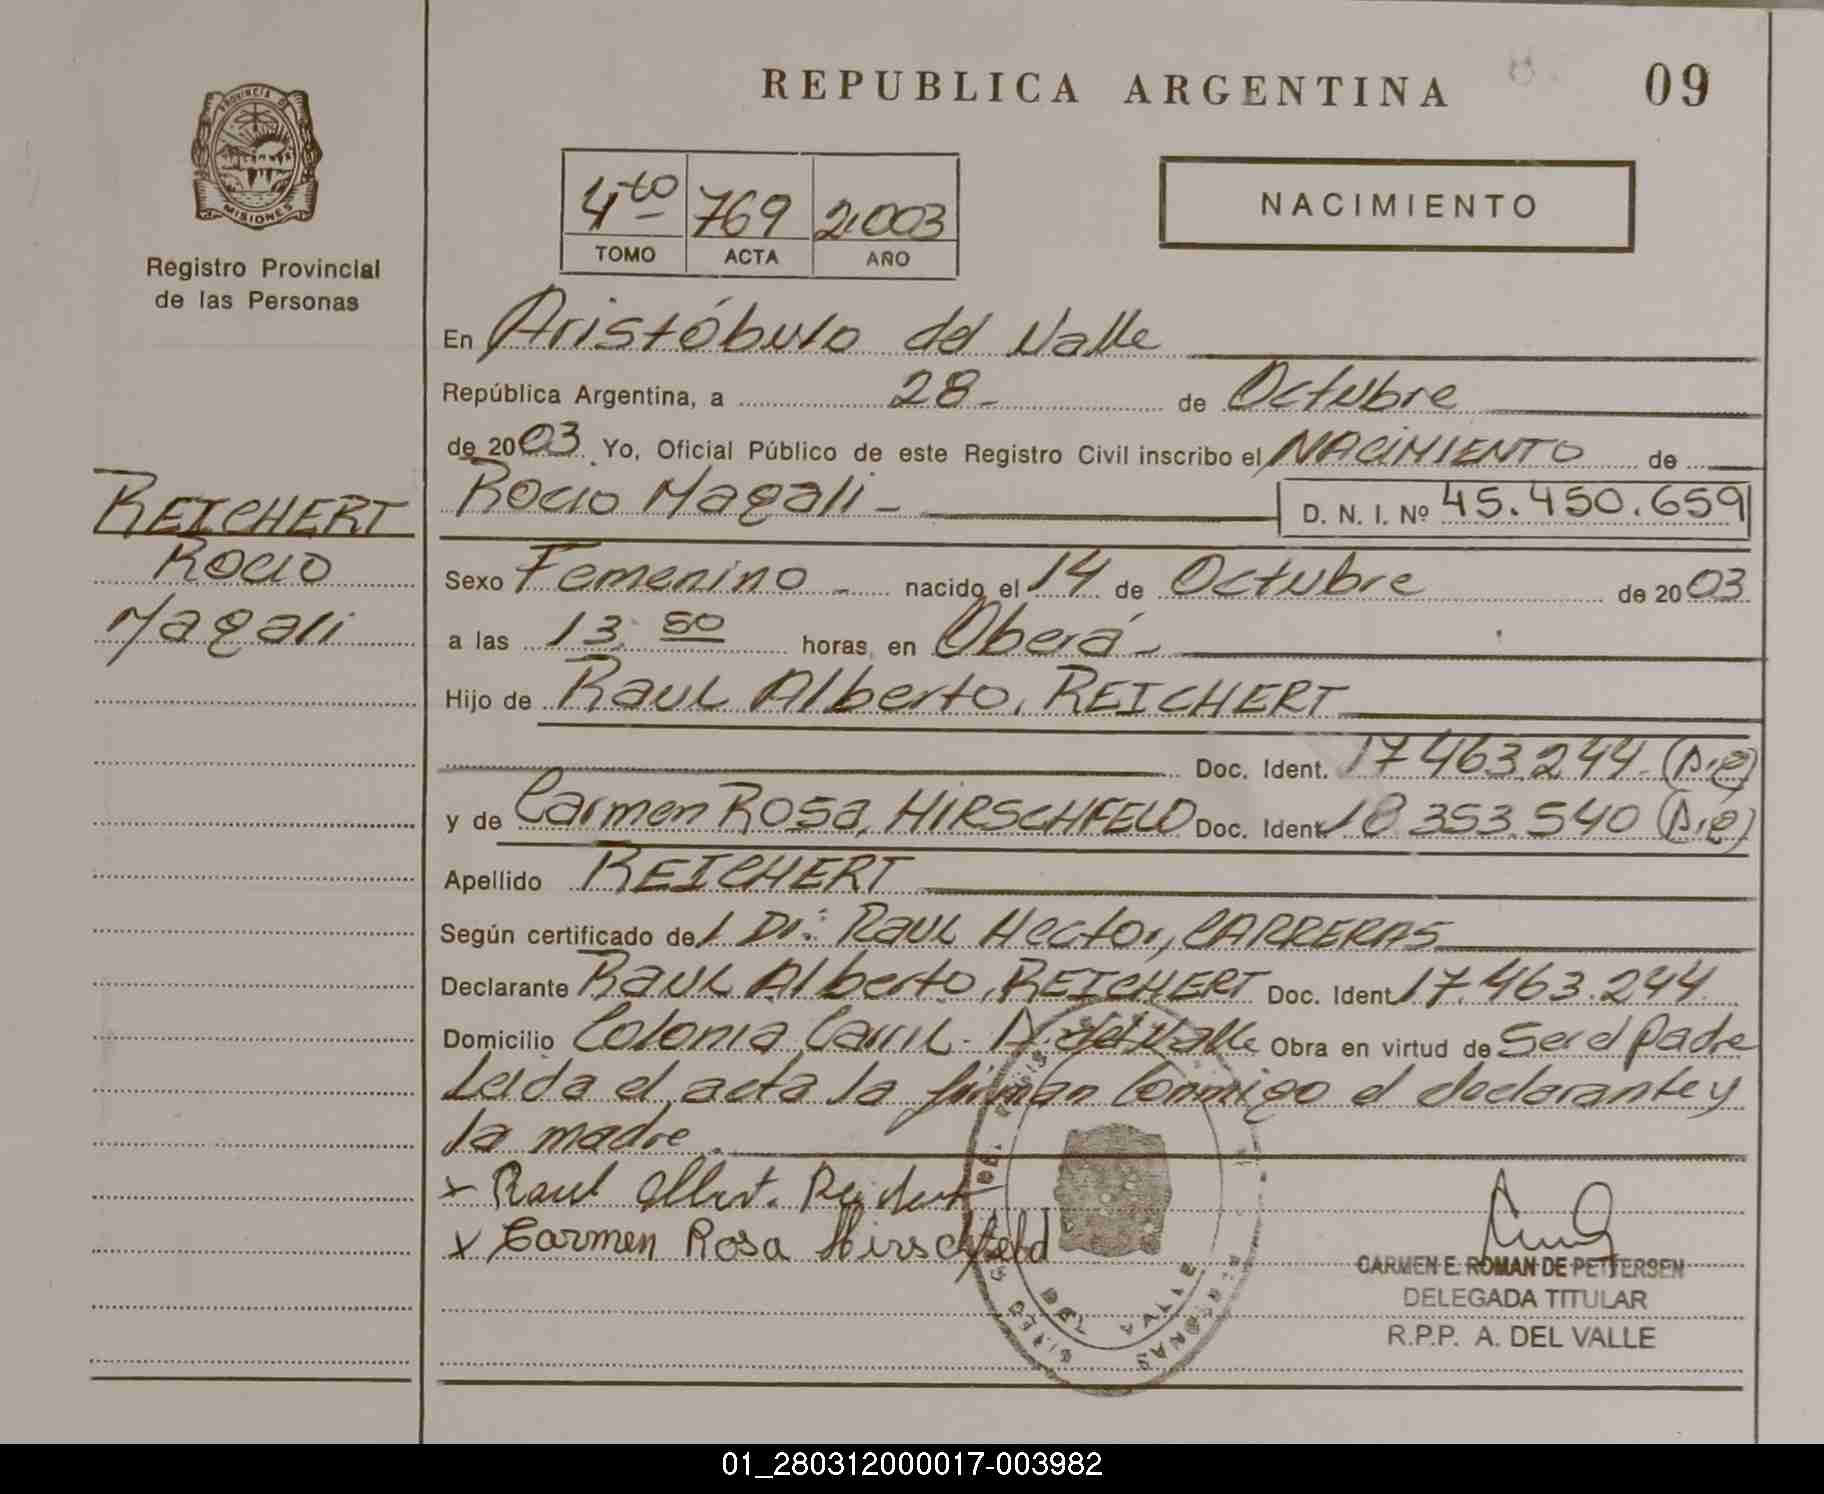 REPUBLICA ARGENTINA
09
PROVINCIA DE
MISIONES
Registro Provincial
de las Personas
4to 769 2.003
TOMO ACTA AÑO
NACIMIENTO
En Aristóbulo del Valle
República Argentina, a 28- de Octubre
de 2003. Yo, Oficial Público de este Registro Civil inscribo el NACIMIENTO de
Rocio Magali - D. N. I. Nº 45.450.659
REICHERT
Rocio
Magali
Sexo Femenino - nacido el 14 de Octubre de 2003
a las 13:50 horas en Oberá -
Hijo de Raul Alberto, REICHERT
Doc. Ident. 17.463.244 (A.R)
y de Carmen Rosa, HIRSCHFELD Doc. Ident. 18.353.540 (A.R)
Apellido REICHERT
Según certificado del Dr: Raul Hector, CARRERAS
Declarante Raul Alberto, REICHERT Doc. Ident. 17.463.244
Domicilio Colonia Carril. A. del Valle Obra en virtud de Ser el padre
Leida el acta la firman conmigo el declarante y
la madre.
x Raul Albert. Reichert
x Carmen Rosa Hirschfeld
DEL VALLE
CARMEN E. ROMAN DE PETTERSEN
DELEGADA TITULAR
R.P.P. A. DEL VALLE
01_280312000017-003982